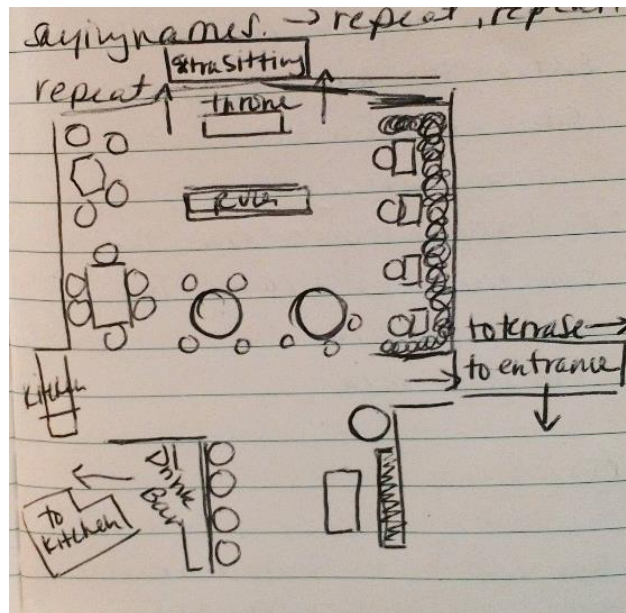 saying names. → repeat, repeat
extra sitting
repeat
throne
to terrase →
to entrance
Kitchen
Drink
Bar
to
Kitchen